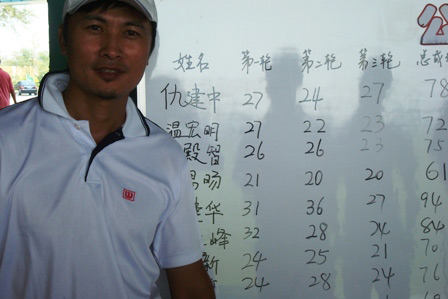 姓名 第一轮 第二轮 第三轮 总成
仇建中 27 24 27 78
温宏明 27 22 23 72
殿智 26 26 23 75
旸 21 20 20 61
华 31 36 27 94
峰 32 28 24 84
新 24 25 21 70
24 28 24 76